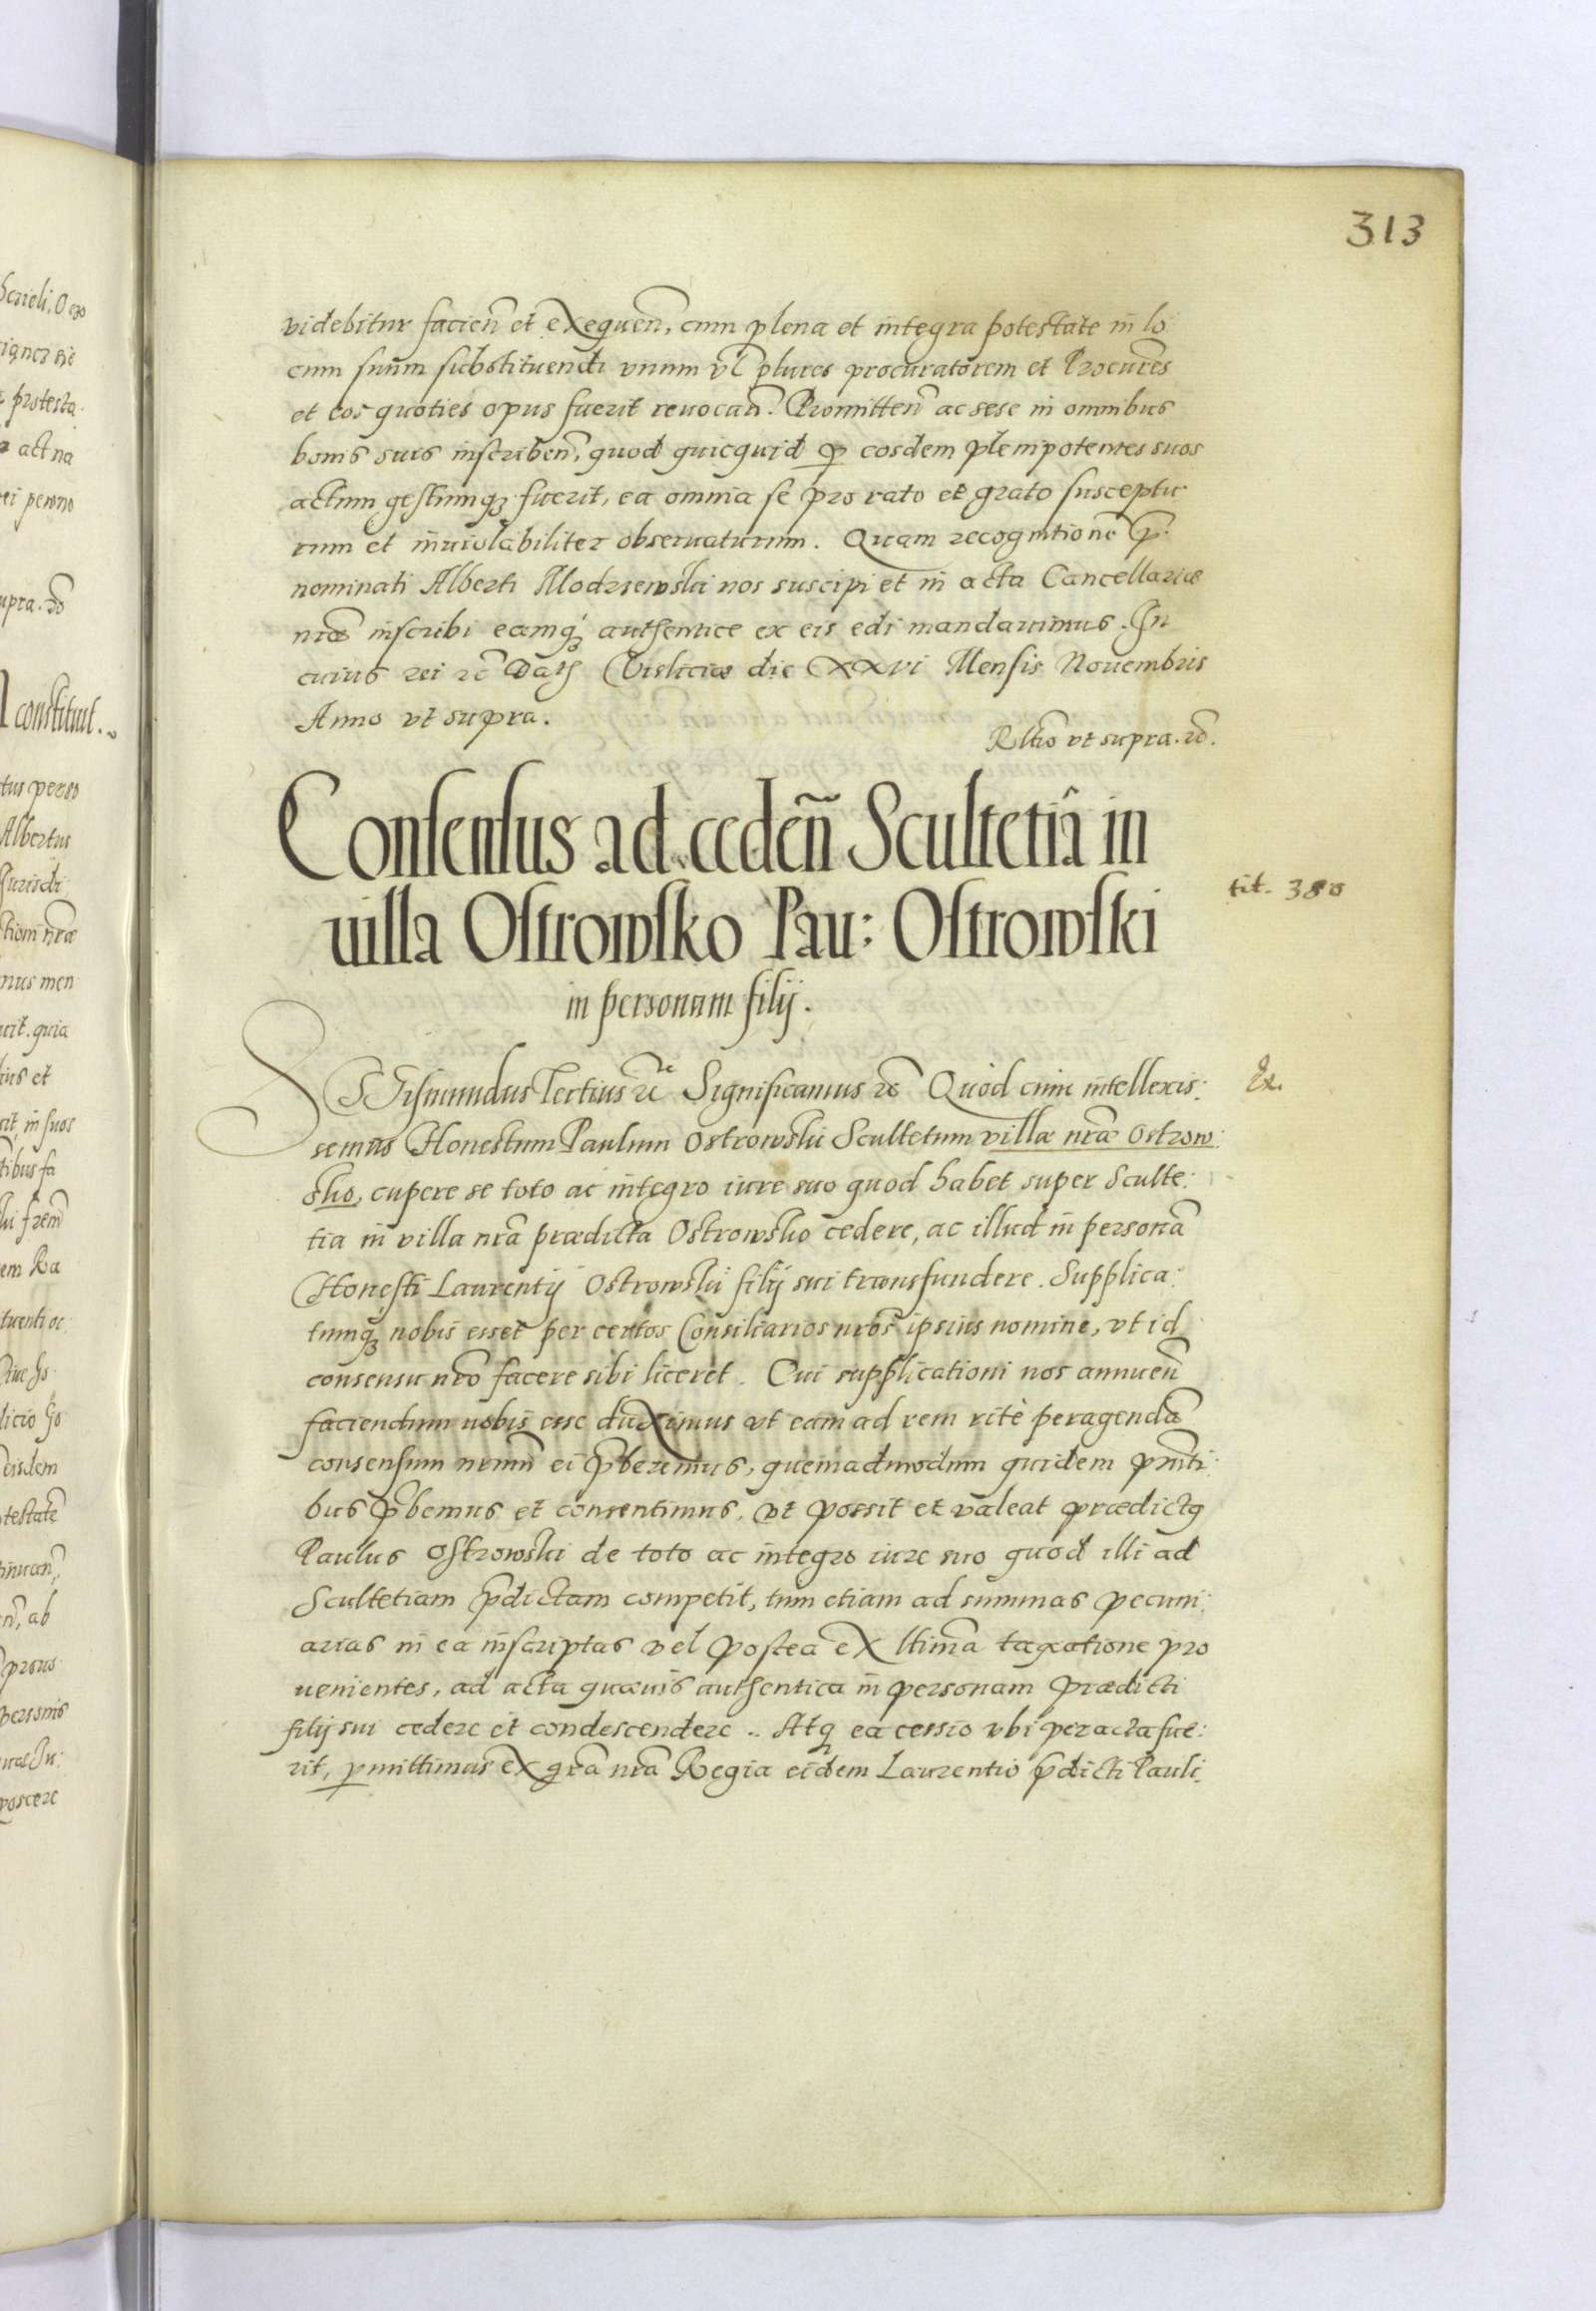 313
videbitur facien̄ et exequen̄, cum plena et integra potestate in lo
cum suum substituendi vnum vl̄ plures procuratorem et Procurēs
et eos quoties opus fuerit reuocan̄. Promitten̄ ac sese in omnibus
bonis suis inscriben̄, quod quicquid ꝑ eosdem plenipotentes suos
actum gestumqꝫ fuerit, ea omnia se pro rato et grato susceptu
rum et inuiolabiliter obseruaturum. Quam recognitionē p̄
nominati Alberti Modrzewski nos suscipi et in acta Cancellariæ
nr̄æ inscribi eamqꝫ authentice ex eis edi mandauimus. In
cuius rei rc̄ Datꝭ Visliciæ die XXvi Mensis Nouembris
Anno vt supra.
Rltio vt supra. rc̄.
Consensus ad ceden̄ Scultetiā in
uilla Ostrowsko Pau: Ostrowski
in personam filij.
tit. 380
Sigismundus Tertius rc̄ Significamus rc̄ Quòd cum intellexis:
Ex.
semus Honestum Paulum Ostrowski Scultetum villæ nr̄æ Ostrow:
sko, cupere se toto ac integro iure suo quod habet super Sculte:
tia in villa nr̄a prædicta Ostrowsko cedere, ac illud in personā
Honesti Laurentij Ostrowski filij sui transfundere. Supplica:
tumqꝫ nobis esset per certos Consiliarios nr̄os ipsius nomine, vt id
consensu nr̄o facere sibi liceret. Cui supplicationi nos annuen̄
faciendum nobis esse duximus vt eam ad rem ritè peragendā
consensum nr̄um ei p̄beremus, quemadmodum quidem pn̄ti:
bus p̄bemus et consentimus, vt possit et valeat prædictꝰ
Paulus Ostrowski de toto ac integro iure suo quod illi ad
Scultetiam p̄dictam competit, tum etiam ad summas pecuni:
arias in ea inscriptas vel postea ex ltima taxatione pro
uenientes, ad acta quæuis authentica in personam prædicti
filij sui cedere et condescendere. Atqꝫ ea cessio vbi peracta fue:
rit, ꝑmittimus ex gr̄a nr̄a Regia eidem Laurentio p̄dicti Pauli